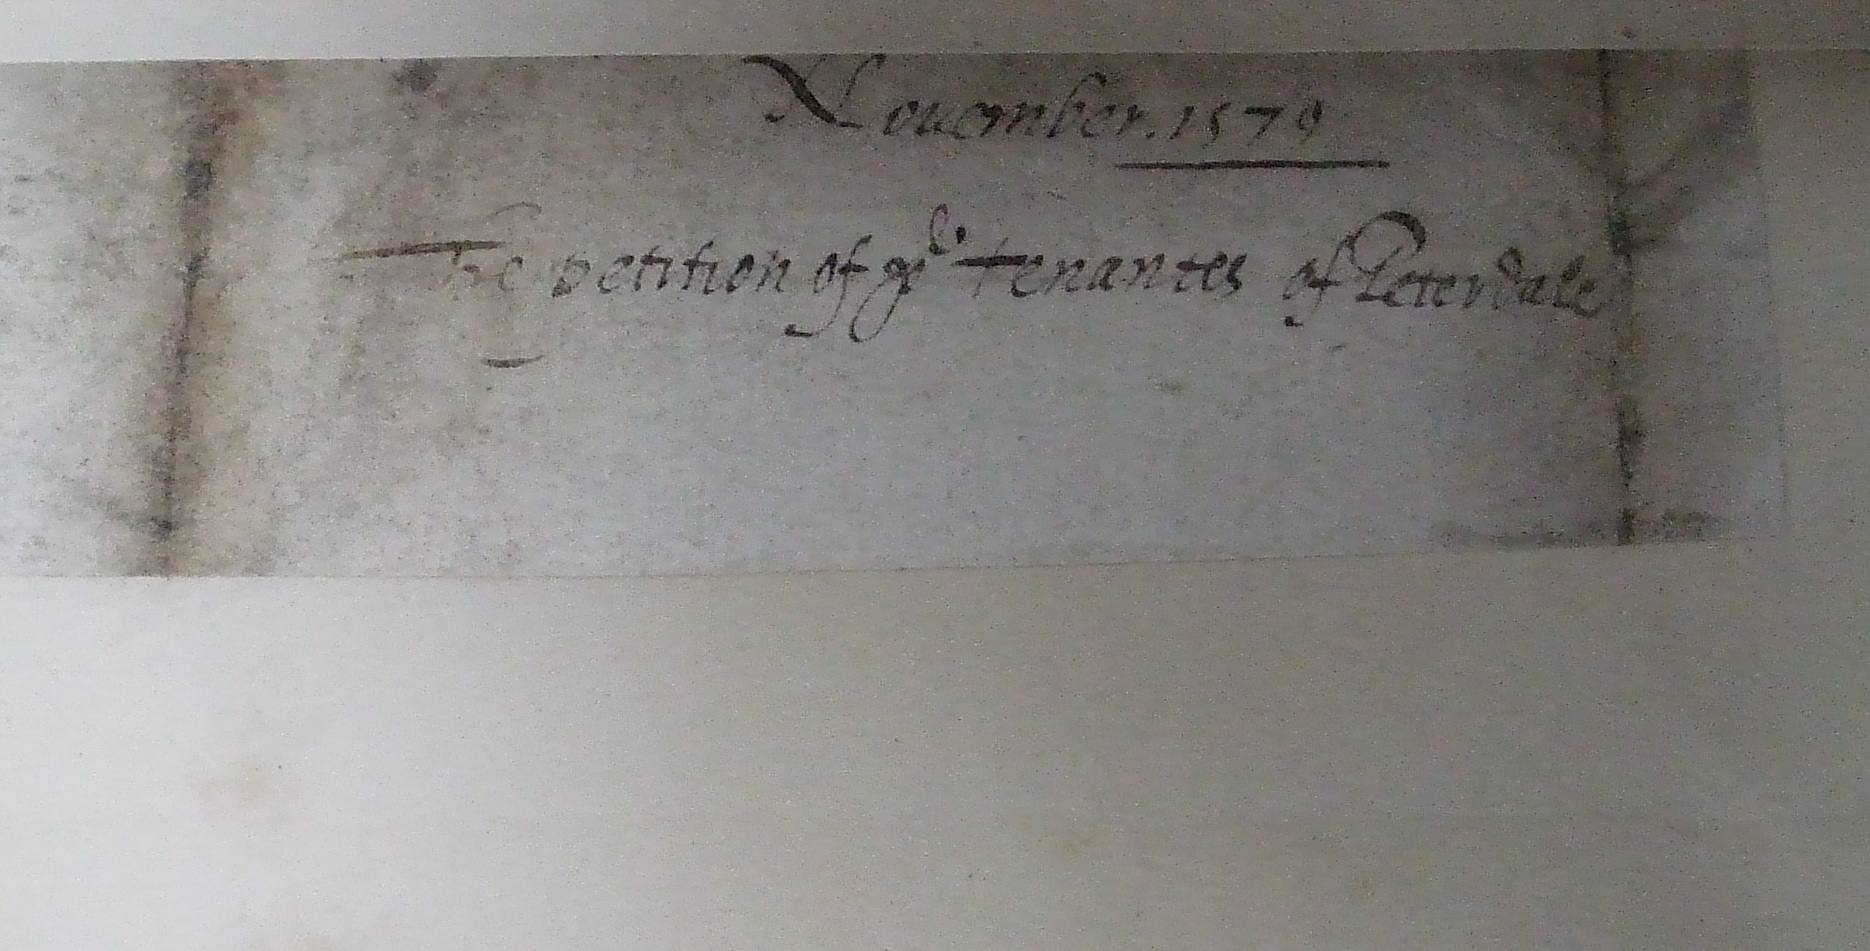 November. 1579
The petition of yͤ tenantes of Peterdale